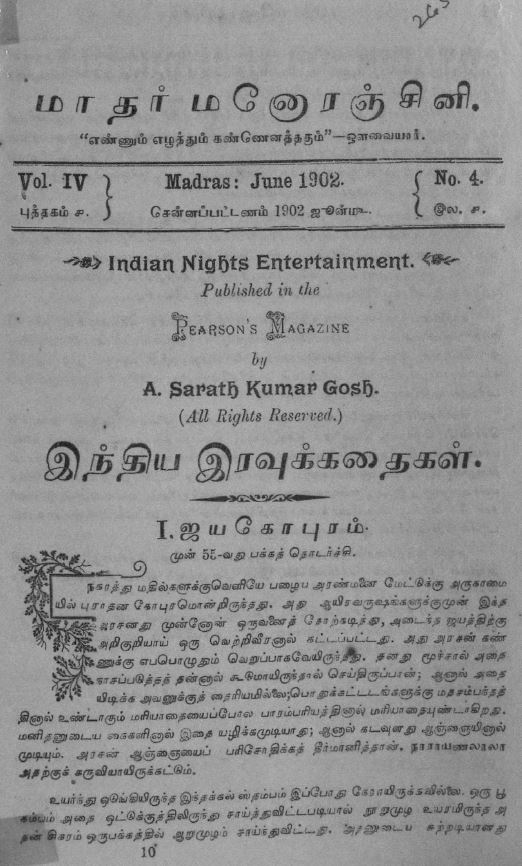 263
மாதர் மனோரஞ்சினி.
“எண்ணும் எழுத்தும் கண்ணெனத்தகும்”—ஔவையார்.
Vol. IV Madras: June 1902. No. 4.
புத்தகம் ௪. சென்னப்பட்டணம் 1902 ஜூன்மீ. இல. ௪.
Indian Nights Entertainment.
Published in the
PEARSON'S MAGAZINE
by
A. Sarath Kumar Gosh.
(All Rights Reserved.)
இந்திய இரவுக்கதைகள்.
I. ஜயகோபுரம்.
முன் 55-வது பக்கத் தொடர்ச்சி.
நகரத்து மதில்களுக்குவெளியே பழைய அரண்மனை மேட்டுக்கு அருகாமை
யில் புராதன கோபுரமொன்றிருந்தது. அது ஆயிரவருஷங்களுக்குமுன் இந்த
அரசனது முன்னோன் ஒருவனைத் தோற்கடித்து, அடைந்த ஜயத்திற்கு
அறிகுறியாய் ஒரு வெற்றிவீரனால் கட்டப்பட்டது. அது அரசன் கண்
ணுக்கு எப்பொழுதும் வெறுப்பாகவேயிருந்தது. தனது மூச்சால் அதை
நாசப்படுத்தத் தன்னால் கூடுமாயிருந்தால் செய்திருப்பான்; ஆனால் அதை
யிடிக்க அவனுக்குத் தைரியமில்லை; பொதுக்கட்டடங்களுக்கு மதசம்பந்தத்
தினால் உண்டாகும் மரியாதையைப்போல பாரம்பரியத்தினால் மரியாதையுண்டாகிறது.
மனிதனுடைய கைகளினால் இதை யழிக்கமுடியாது; ஆனால் கடவுளது ஆஞ்ஞையினால்
முடியும். அரசன் ஆஞ்ஞையைப் பரிசோதிக்கத் தீர்மானித்தான். நாராயணலாலா
அதற்குக் கருவியாயிருக்கட்டும்.
உயர்ந்து ஒடுங்கியிருந்த இந்தக்கல் ஸ்தம்பம் இப்போது நேராயிருக்கவில்லை. ஒரு பூ
கம்பம் அதை ஒட்டுக்குத்திலிருந்து சாய்த்துவிட்டபடியால் நூறுமுழ உயரமிருந்த அ
தன் சிகரம் ஒருபக்கத்தில் ஆறுமுழம் சாய்ந்துவிட்டது. அதனுடைய சுற்றடியானது
10